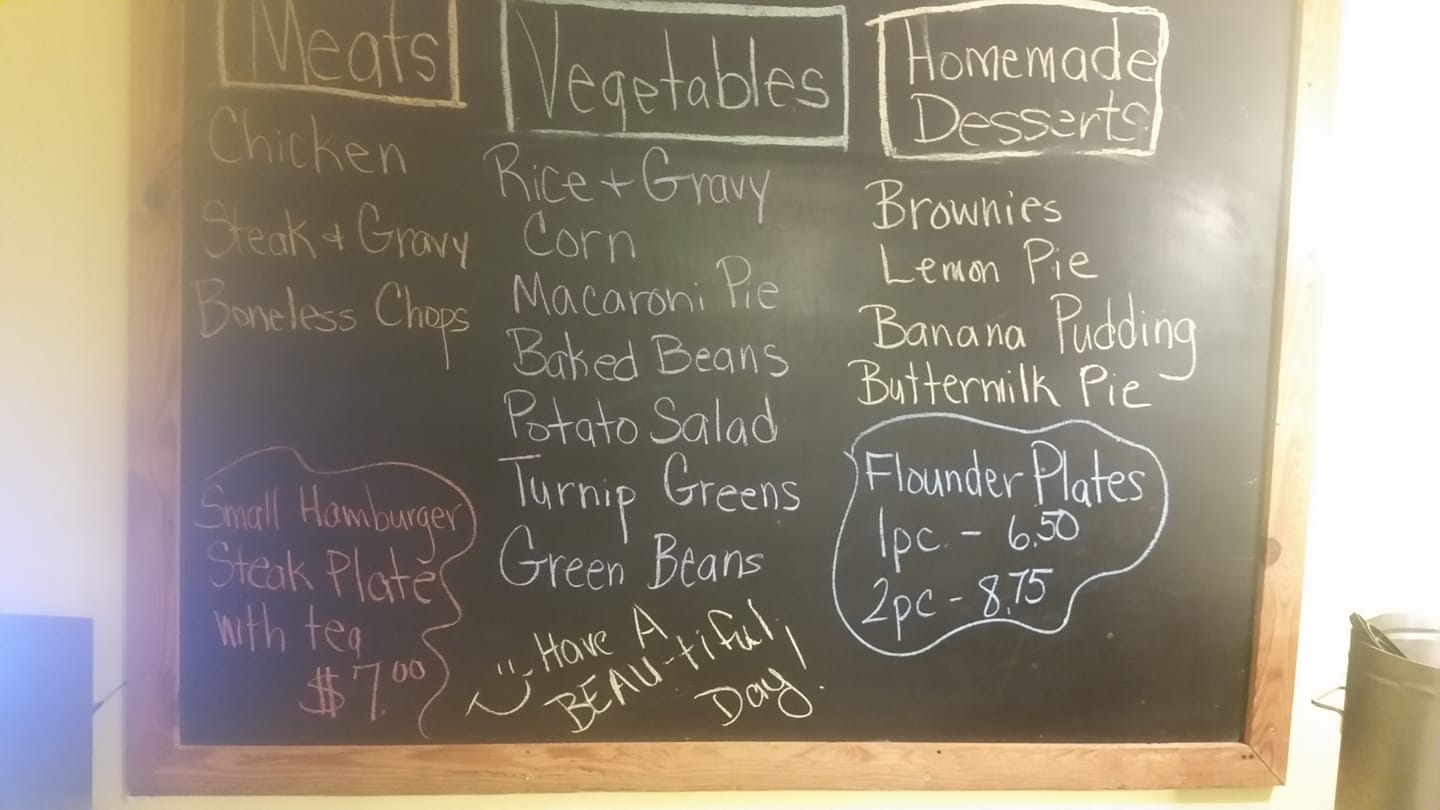 Meats
Chicken
Steak & Gravy
Boneless Chops
Small Hamburger
Steak Plate
with tea
$7.00
Vegetables
Rice + Gravy
Corn
Macaroni Pie
Baked Beans
Potato Salad
Turnip Greens
Green Beans
Have A
BEAU-tiful
Day!
Homemade
Desserts
Brownies
Lemon Pie
Banana Pudding
Buttermilk Pie
Flounder Plates
1pc. - 6.50
2pc - 8.75